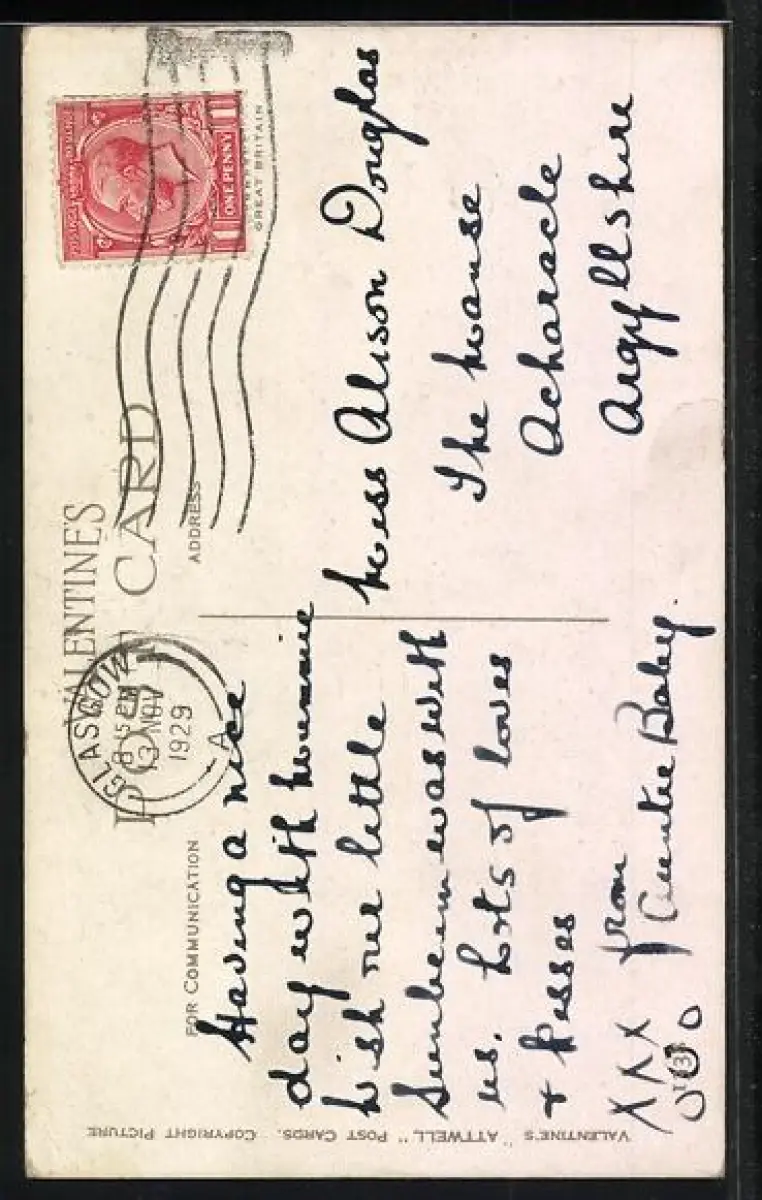 VALENTINE'S
POST CARD
FOR COMMUNICATION
ADDRESS
POSTAGE REVENUE
ONE PENNY
GREAT BRITAIN
GLASGOW
8 15 PM
13 NOV
1929
A
Having a nice
day with Mummie
Wish our little
Sunbeam was with
us. Lots of loves
& Kisses
from
XXX
OOO
Auntie Baby.
Miss Alison Douglas
The Manse
Acharacle
Argyllshire
VALENTINE'S "ATTWELL" POST CARDS. COPYRIGHT PICTURE